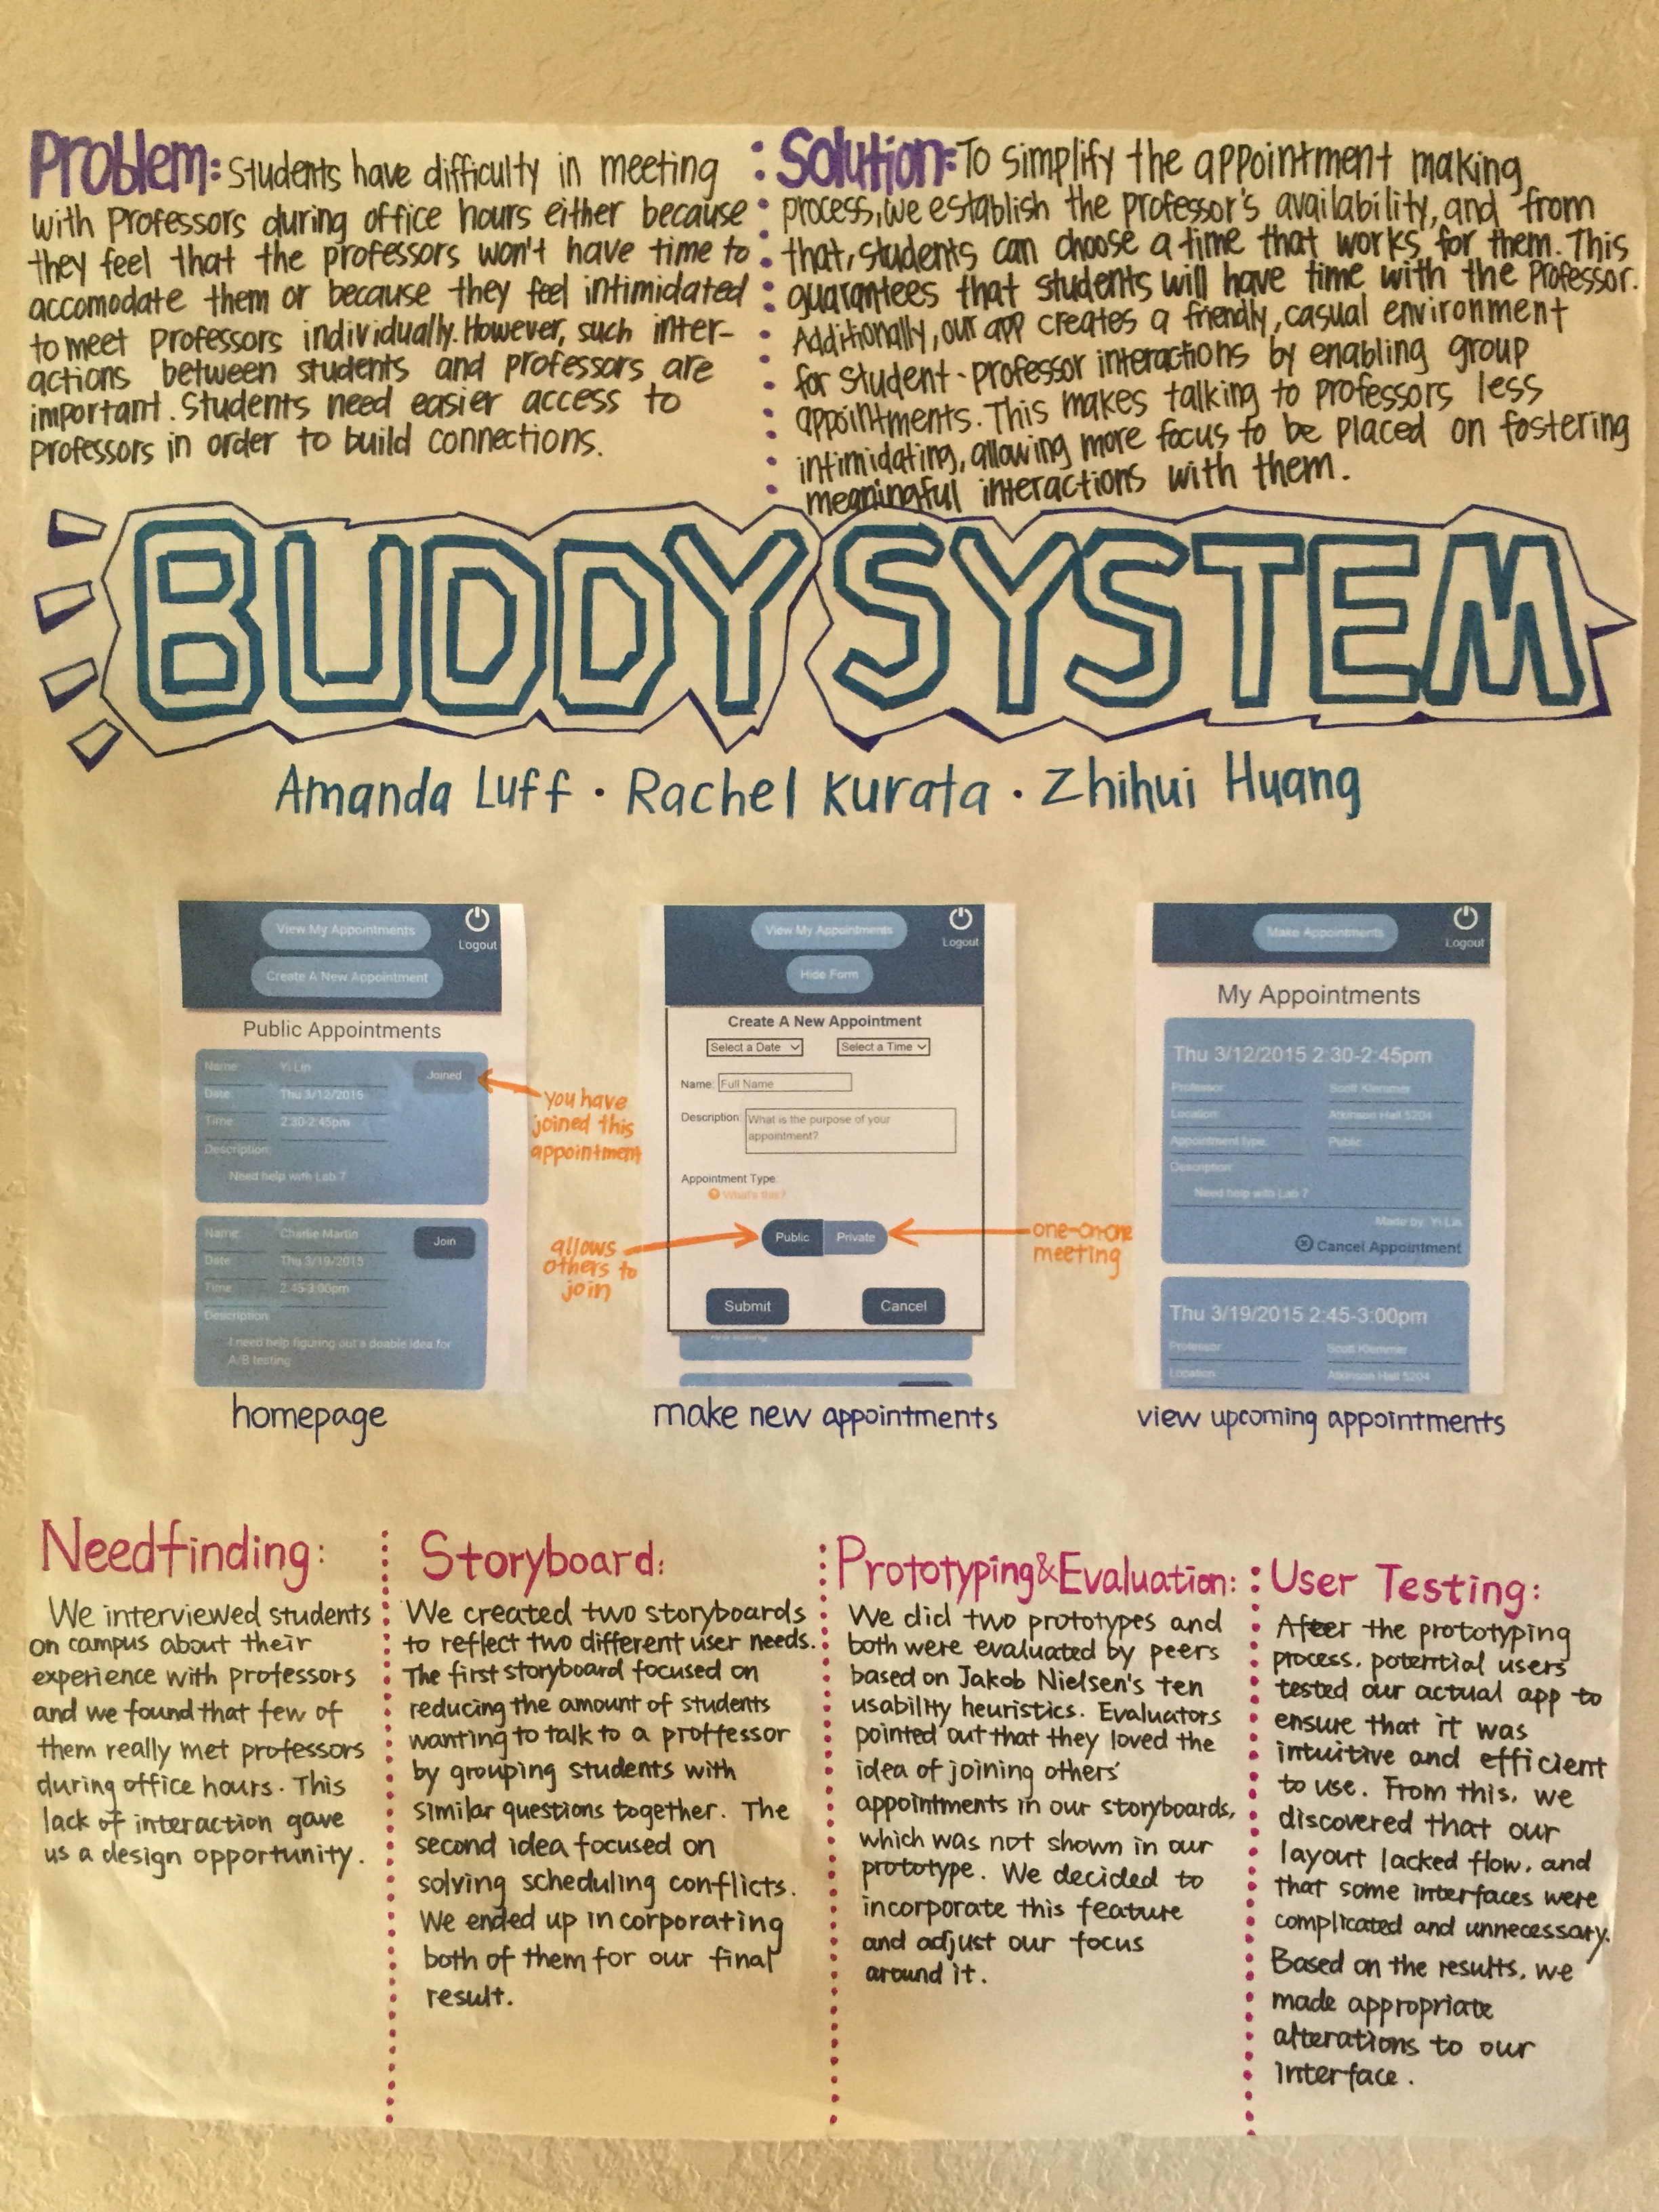 Problem: Students have difficulty in meeting
with professors during office hours either because
they feel that the professors won't have time to
accomodate them or because they feel intimidated
to meet professors individually. However, such inter-
actions between students and professors are
important. Students need easier access to
professors in order to build connections.
Solution: To simplify the appointment making
process, we establish the professor's availability, and from
that, students can choose a time that works for them. This
guarantees that students will have time with the professor.
Additionally, our app creates a friendly, casual environment
for student-professor interactions by enabling group
appointments. This makes talking to professors less
intimidating, allowing more focus to be placed on fostering
meaningful interactions with them.
BUDDY SYSTEM
Amanda Luff · Rachel Kurata · Zhihui Huang
View My Appointments
Logout
Create A New Appointment
Public Appointments
Name: Yi Lin
Joined
Date: Thu 3/12/2015
Time: 2:30-2:45pm
Description:
Need help with Lab 7
Name: Charlie Martin
Join
Date: Thu 3/19/2015
Time: 2:45-3:00pm
Description:
I need help figuring out a doable idea for
A/B testing
you have
joined this
appointment
homepage
View My Appointments
Logout
Hide Form
Create A New Appointment
Select a Date
Select a Time
Name: Full Name
Description: What is the purpose of your
appointment?
Appointment Type:
What's this?
Public
Private
Submit
Cancel
A/B testing
allows
others to
join
one-on-one
meeting
make new appointments
Make Appointments
Logout
My Appointments
Thu 3/12/2015 2:30-2:45pm
Professor: Scott Klemmer
Location: Atkinson Hall 5204
Appointment type: Public
Description:
Need help with Lab 7
Made by: Yi Lin
Cancel Appointment
Thu 3/19/2015 2:45-3:00pm
Professor: Scott Klemmer
Location: Atkinson Hall 5204
view upcoming appointments
Needfinding:
We interviewed students
on campus about their
experience with professors
and we found that few of
them really met professors
during office hours. This
lack of interaction gave
us a design opportunity.
Storyboard:
We created two storyboards
to reflect two different user needs.
The first storyboard focused on
reducing the amount of students
wanting to talk to a proffessor
by grouping students with
similar questions together. The
second idea focused on
solving scheduling conflicts.
We ended up incorporating
both of them for our final
result.
Prototyping & Evaluation:
We did two prototypes and
both were evaluated by peers
based on Jakob Nielsen's ten
usability heuristics. Evaluators
pointed out that they loved the
idea of joining others'
appointments in our storyboards,
which was not shown in our
prototype. We decided to
incorporate this feature
and adjust our focus
around it.
User Testing:
After the prototyping
process, potential users
tested our actual app to
ensure that it was
intuitive and efficient
to use. From this, we
discovered that our
layout lacked flow, and
that some interfaces were
complicated and unnecessary.
Based on the results, we
made appropriate
alterations to our
interface.